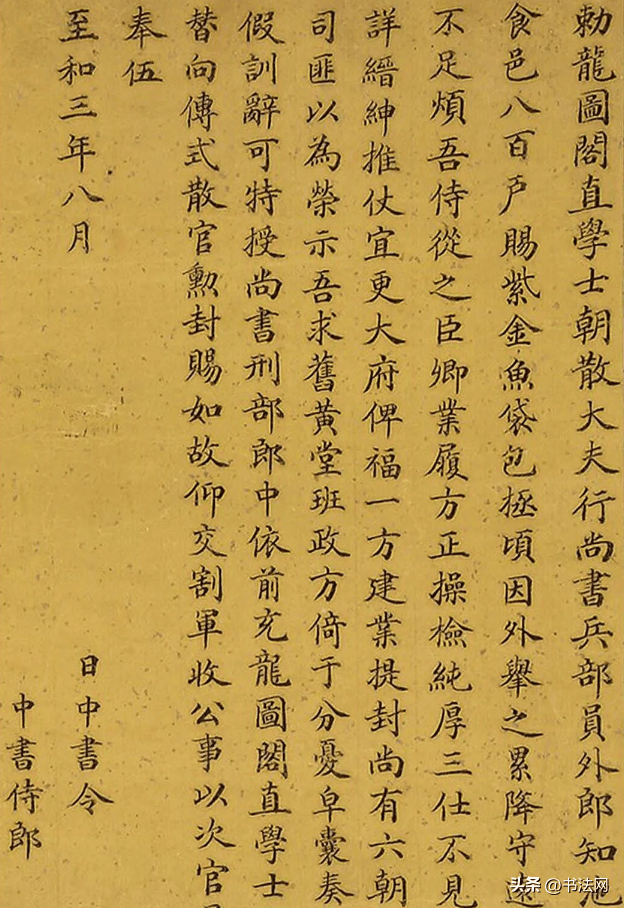 勅龍圖閣直學士朝散大夫行尚書兵部員外郎知池
食邑八百戶賜紫金魚袋包拯頃因外舉之累降守遠
不足煩吾侍從之臣卿業履方正操檢純厚三仕不見
詳縉紳推仗宜更大府俾福一方建業提封尚有六朝
司匪以為榮示吾求舊黃堂班政方倚于分憂皁囊奏
假訓辭可特授尚書刑部郎中依前充龍圖閣直學士
替向傳式散官勲封賜如故仰交割軍收公事以次官
奉伍
至和三年八月
日中書令
中書侍郎
头条 @书法网